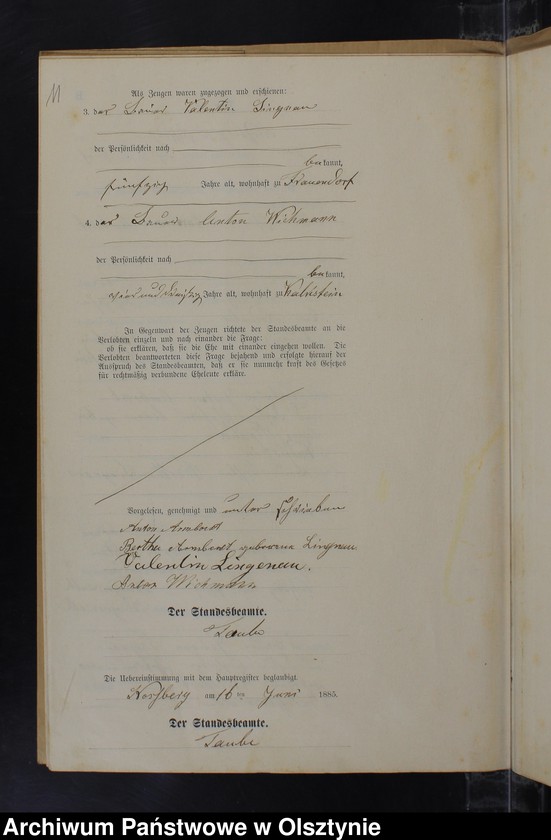 11
Als Zeugen waren zugezogen und erschienen:
3. der Bauer Valentin Lingnau
der Persönlichkeit nach
bekannt,
fünfzig Jahre alt, wohnhaft zu Frauendorf
4. der Bauer Anton Wichmann
der Persönlichkeit nach
bekannt,
vier und dreißig Jahre alt, wohnhaft zu Kalkstein
In Gegenwart der Zeugen richtete der Standesbeamte an die
Verlobten einzeln und nach einander die Frage:
ob sie erklären, daß sie die Ehe mit einander eingehen wollen. Die
Verlobten beantworteten diese Frage bejahend und erfolgte hierauf der
Ausspruch des Standesbeamten, daß er sie nunmehr kraft des Gesetzes
für rechtmäßig verbundene Eheleute erkläre.
Vorgelesen, genehmigt und unterschrieben
Anton Armborst
Bertha Armborst geborene Lingnau
Valentin Lingenau.
Anton Wichmann
Der Standesbeamte.
Taube
Die Uebereinstimmung mit dem Hauptregister beglaubigt
am 16 ten Juni 1885.
Der Standesbeamte.
Taube
Archiwum Państwowe w Olsztynie